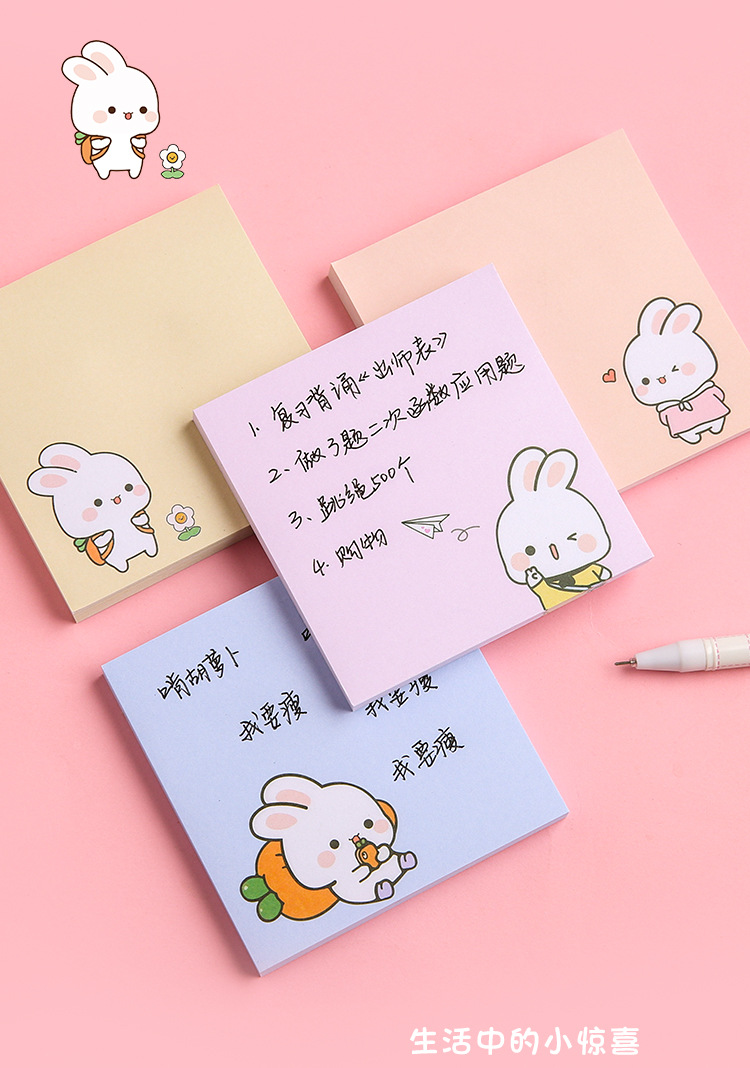 1、复习背诵《出师表》
2、做3题二次函数应用题
3、跳绳500个
4、购物
啃胡萝卜
我要瘦
我要瘦
我要瘦
生活中的小惊喜